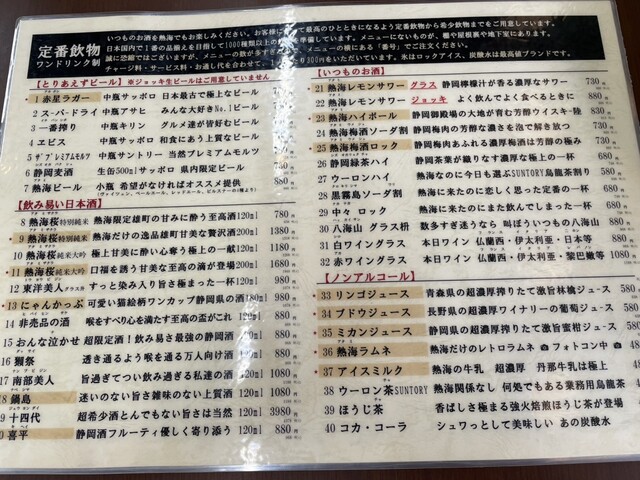 定番飲物
ワンドリンク制
いつものお酒を熱海でもお楽しみください。お客様に
って最高のひとときになるよう定番飲物から希少飲物までをご用意しています。
日本国内で1番の品揃えを目指して1000種類以上の
準備しています。メニューにないものが、棚や屋根裏や地下室にあります。
メニューの横にある「番号」でご注文ください。
300円をいただいています。氷はロックアイス、炭酸水は最高値ブランドです。
【とりあえずビール】※ジョッキ生ビールはご用意していません
1 赤星ラガー 中瓶サッポロ 日本最古で極上なビール
2 スーパードライ 中瓶アサヒ みんな大好きNo.1ビール
3 一番搾り 中瓶キリン グルメ達が皆好むビール
4 エビス 中瓶サッポロ 和食にあう上質なビール
5 ザプレミアムモルツ 中瓶サントリー 当然プレミアムモルツ
6 静岡麦酒 生缶500mlサッポロ 県内限定ビール
7 熱海ビール 小瓶 希望がなければオススメ提供
【飲み易い日本酒】
8 熱海桜特別純米 熱海限定雄町の甘みに酔う至高酒120ml 780
9 熱海桜特別純米 熱海だけの逸品雄町甘美な贅沢酒 200ml 1300
10 熱海桜純米大吟 極上甘美に酔い心奪う極上の一献 120ml 1180
11 熱海桜純米大吟 口福を誘う甘美な至高の滴が登場 200ml 1980
12 東洋美人 すっと染み入り旨さ極まった一杯 120ml 880
13 にゃんかっぷ 可愛い猫絵柄ワンカップ静岡県の酒 180ml
14 非売品の酒 喉をすべり心を満たす至高が盃これ 120ml 880
15 おんな泣かせ 超限定酒!飲み易さ最強の静岡酒 120ml 880
16 獺祭 透き通るよう喉を通る万人向け酒 120ml 880
17 南部美人 旨過ぎてつい飲み過ぎる私達の酒 120ml 880
18 鍋島 迷いのない旨さ雑味のない上質酒 120ml 1380
9 十四代 超希少酒とんでもない旨さは当然 120ml 3980
0 喜平 静岡酒フルーティ優しく寄り添う 120ml 880
【いつものお酒】
21 熱海レモンサワー グラス 静岡檸檬汁が香る濃厚なサワー 730
22 熱海レモンサワー ジョッキ よく飲んでよく食べるときに 880
23 熱海ハイボール 静岡御殿場の大地が育む芳醇ウイスキー陸 880
24 熱海梅酒ソーダ割 静岡梅肉の芳醇な濃さを泡で解き放つ 730
25 熱海梅酒ロック 静岡梅肉あふれる濃厚梅酒は芳醇の極み 730
26 静岡緑茶ハイ 静岡茶葉が織りなす濃厚な極上の一杯 680
27 ウーロンハイ 熱海なのに今日も選ぶSUNTORY烏龍茶割り
28 黒霧島ソーダ割 熱海に来たのに恋しく思った定番の一杯 680
29 中々 ロック 熱海に来たのにまた飲んでしまった一杯 680
30 八海山 グラス枡 数多すぎ迷うなら 叫ぼういつもの八海山 880
31 白ワイングラス 本日ワイン 仏蘭西・伊太利亜・日本等 680
32 赤ワイングラス 本日ワイン 仏蘭西・伊太利亜・黎巴嫩等 1080
【ノンアルコール】
33 リンゴジュース 青森県の超濃厚搾りたて激旨林檎ジュース 580
34 ブドウジュース 長野県の超濃厚ワイナリーの葡萄ジュース 580
35 ミカンジュース 静岡県の超濃厚搾りたて激旨蜜柑ジュース 580
36 熱海ラムネ 熱海だけのレトロラムネ フォトコン中
37 アイスミルク 熱海の牛乳 超濃厚 丹那牛乳は極上
38 ウーロン茶SUNTORY 熱海関係なし 何処でもある業務用烏龍茶
39 ほうじ茶 香ばしさ極まる強火焙煎ほうじ茶が登場
40 コカ・コーラ シュワっとして美味しい あの炭酸水